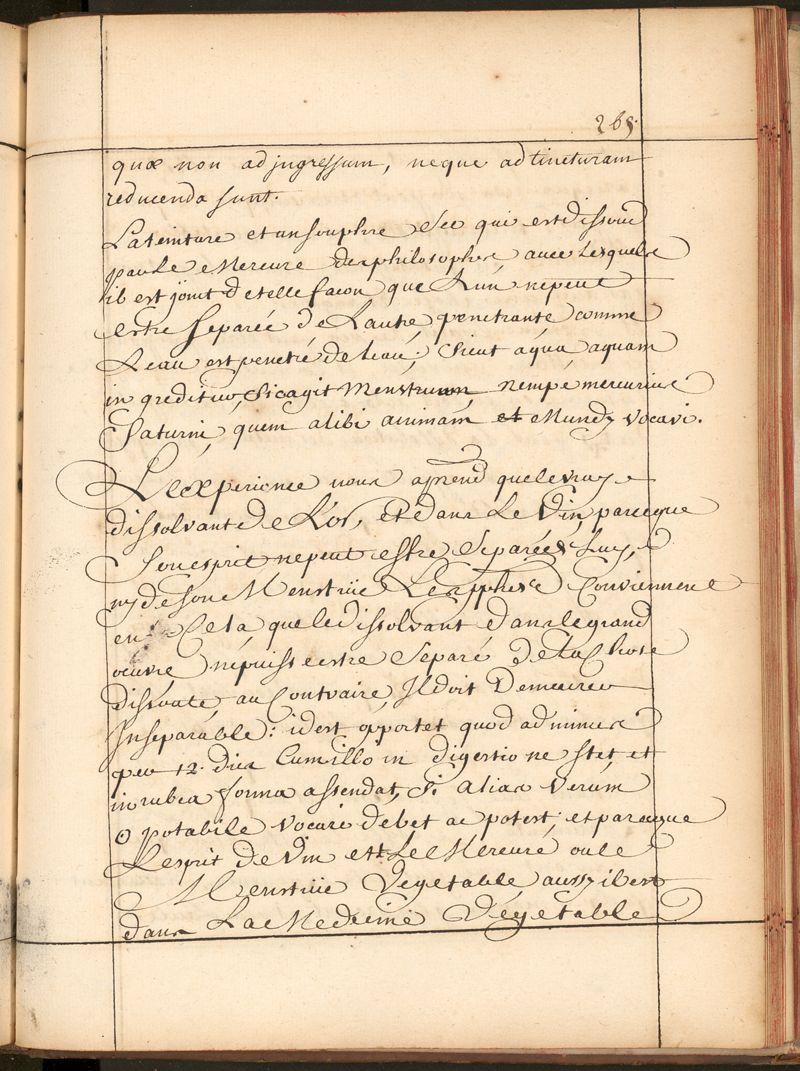 265.
quæ non ad jngressum, neque ad tincturam
reducenda sunt.
La teinture et un souphre sec qui est dissoud
par Le Mercure des philosophes avec Lesquels
il est joint de telle facon que L'un ne peut
estre separée de Lautre penetrante comme
L'eau est penetré de leau; sicut aqua aquam
in greditur, sic agit Menstruum nempe mercurius
Saturni, quem alibi animam et Mundy vocavi.
L'experience nous aprend que le vray
dissolvante de L'or, est dans Le Vin, parceque
son esprit ne peut estre separée de Luy,
ny de son Menstrüe Les pphes Conviennent
en Cela, que le dissolvant dans le grand
oeuvre ne puisse estre separé de la Chose
dissoute, au Contraire, Jl doit Demeurer
Jnseparable: id est opportet quod ad minus
per 12. dies Cum illo in digestione stet et
in rubea forma assendat, si alias verum
☉ potabile vocari debet ac potest, et parceque
L'esprit de Vin est Le Mercure ou le
Menstrüe Vegetable, aussy il est
dans La Medecine Végetable